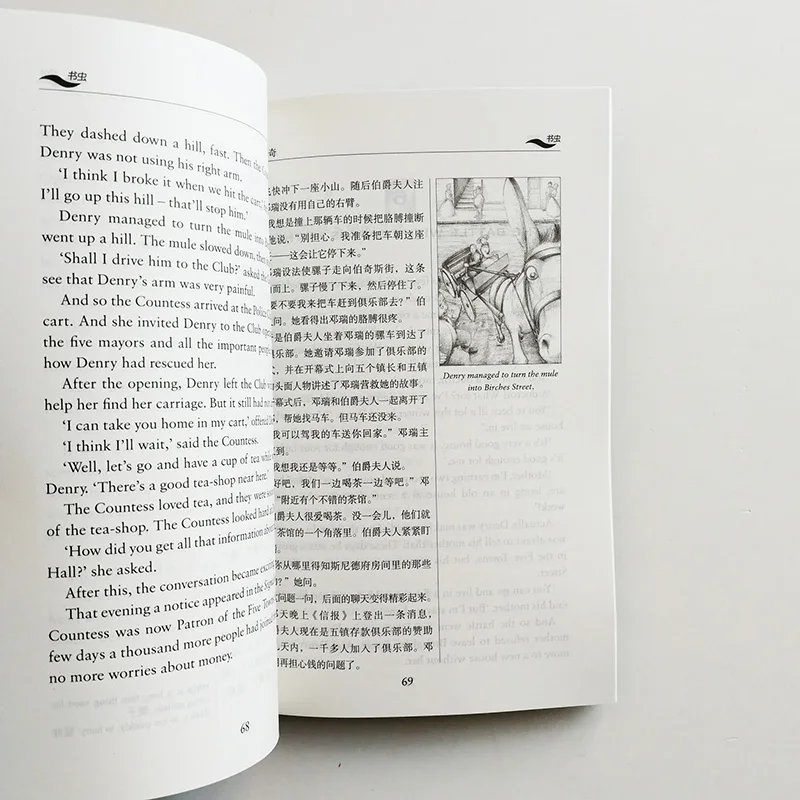 书虫
They dashed down a hill, fast. Then the
Denry was not using his right arm.
‘I think I broke it when we hit the cart,’
I’ll go up this hill – that’ll stop him.’
Denry managed to turn the mule into
went up a hill. The mule slowed down, then
‘Shall I drive him to the Club?’ asked
see that Denry’s arm was very painful.
And so the Countess arrived at the
cart. And she invited Denry to the Club
the five mayors and all the important people
how Denry had rescued her.
After the opening, Denry left the Club
help her find her carriage. But it still had
‘I can take you home in my cart,’ offered
‘I think I’ll wait,’ said the Countess.
‘Well, let’s go and have a cup of tea while
Denry. ‘There’s a good tea-shop near here.’
The Countess loved tea, and they were
of the tea-shop. The Countess looked hard
‘How did you get all that information about
Hall?’ she asked.
After this, the conversation became
That evening a notice appeared in the
Countess was now Patron of the Five
few days a thousand more people had joined
no more worries about money.
68
奇
书虫
快冲下一座小山。随后伯爵夫人注
瑞没有用自己的右臂。
我想是撞上那辆车的时候把胳膊撞断
她说，“别担心。我准备把车朝这座
——这会让它停下来。”
瑞设法使骡子走向伯奇斯街，这条
而上。骡子慢了下来，然后停住了。
要不要我来把车赶到俱乐部去？”伯
问。她看得出邓瑞的胳膊很疼。
是伯爵夫人坐着邓瑞的骡车到达了
部。她邀请邓瑞参加了俱乐部的
，并在开幕式上向五个镇长和五镇
头面人物讲述了邓瑞营救她的故事。
幕式后，邓瑞和伯爵夫人一起离开了
，帮她找马车。但马车还没来。
我可以驾我的车送你回家。”邓瑞主
到。
我想我还是等等。”伯爵夫人说。
好吧，我们一边喝茶一边等吧。”邓
“附近有个不错的茶馆。”
爵夫人很爱喝茶。没一会儿，他们就
茶馆的一个角落里。伯爵夫人紧紧盯
你从哪里得知斯尼德府房间里的那些
？”她问。
问题一问，后面的聊天变得精彩起来。
天晚上《信报》上登出一条消息，
爵夫人现在是五镇存款俱乐部的赞助
天内，一千多人加入了俱乐部。邓
再担心钱的问题了。
Denry managed to turn the mule
into Birches Street.
69